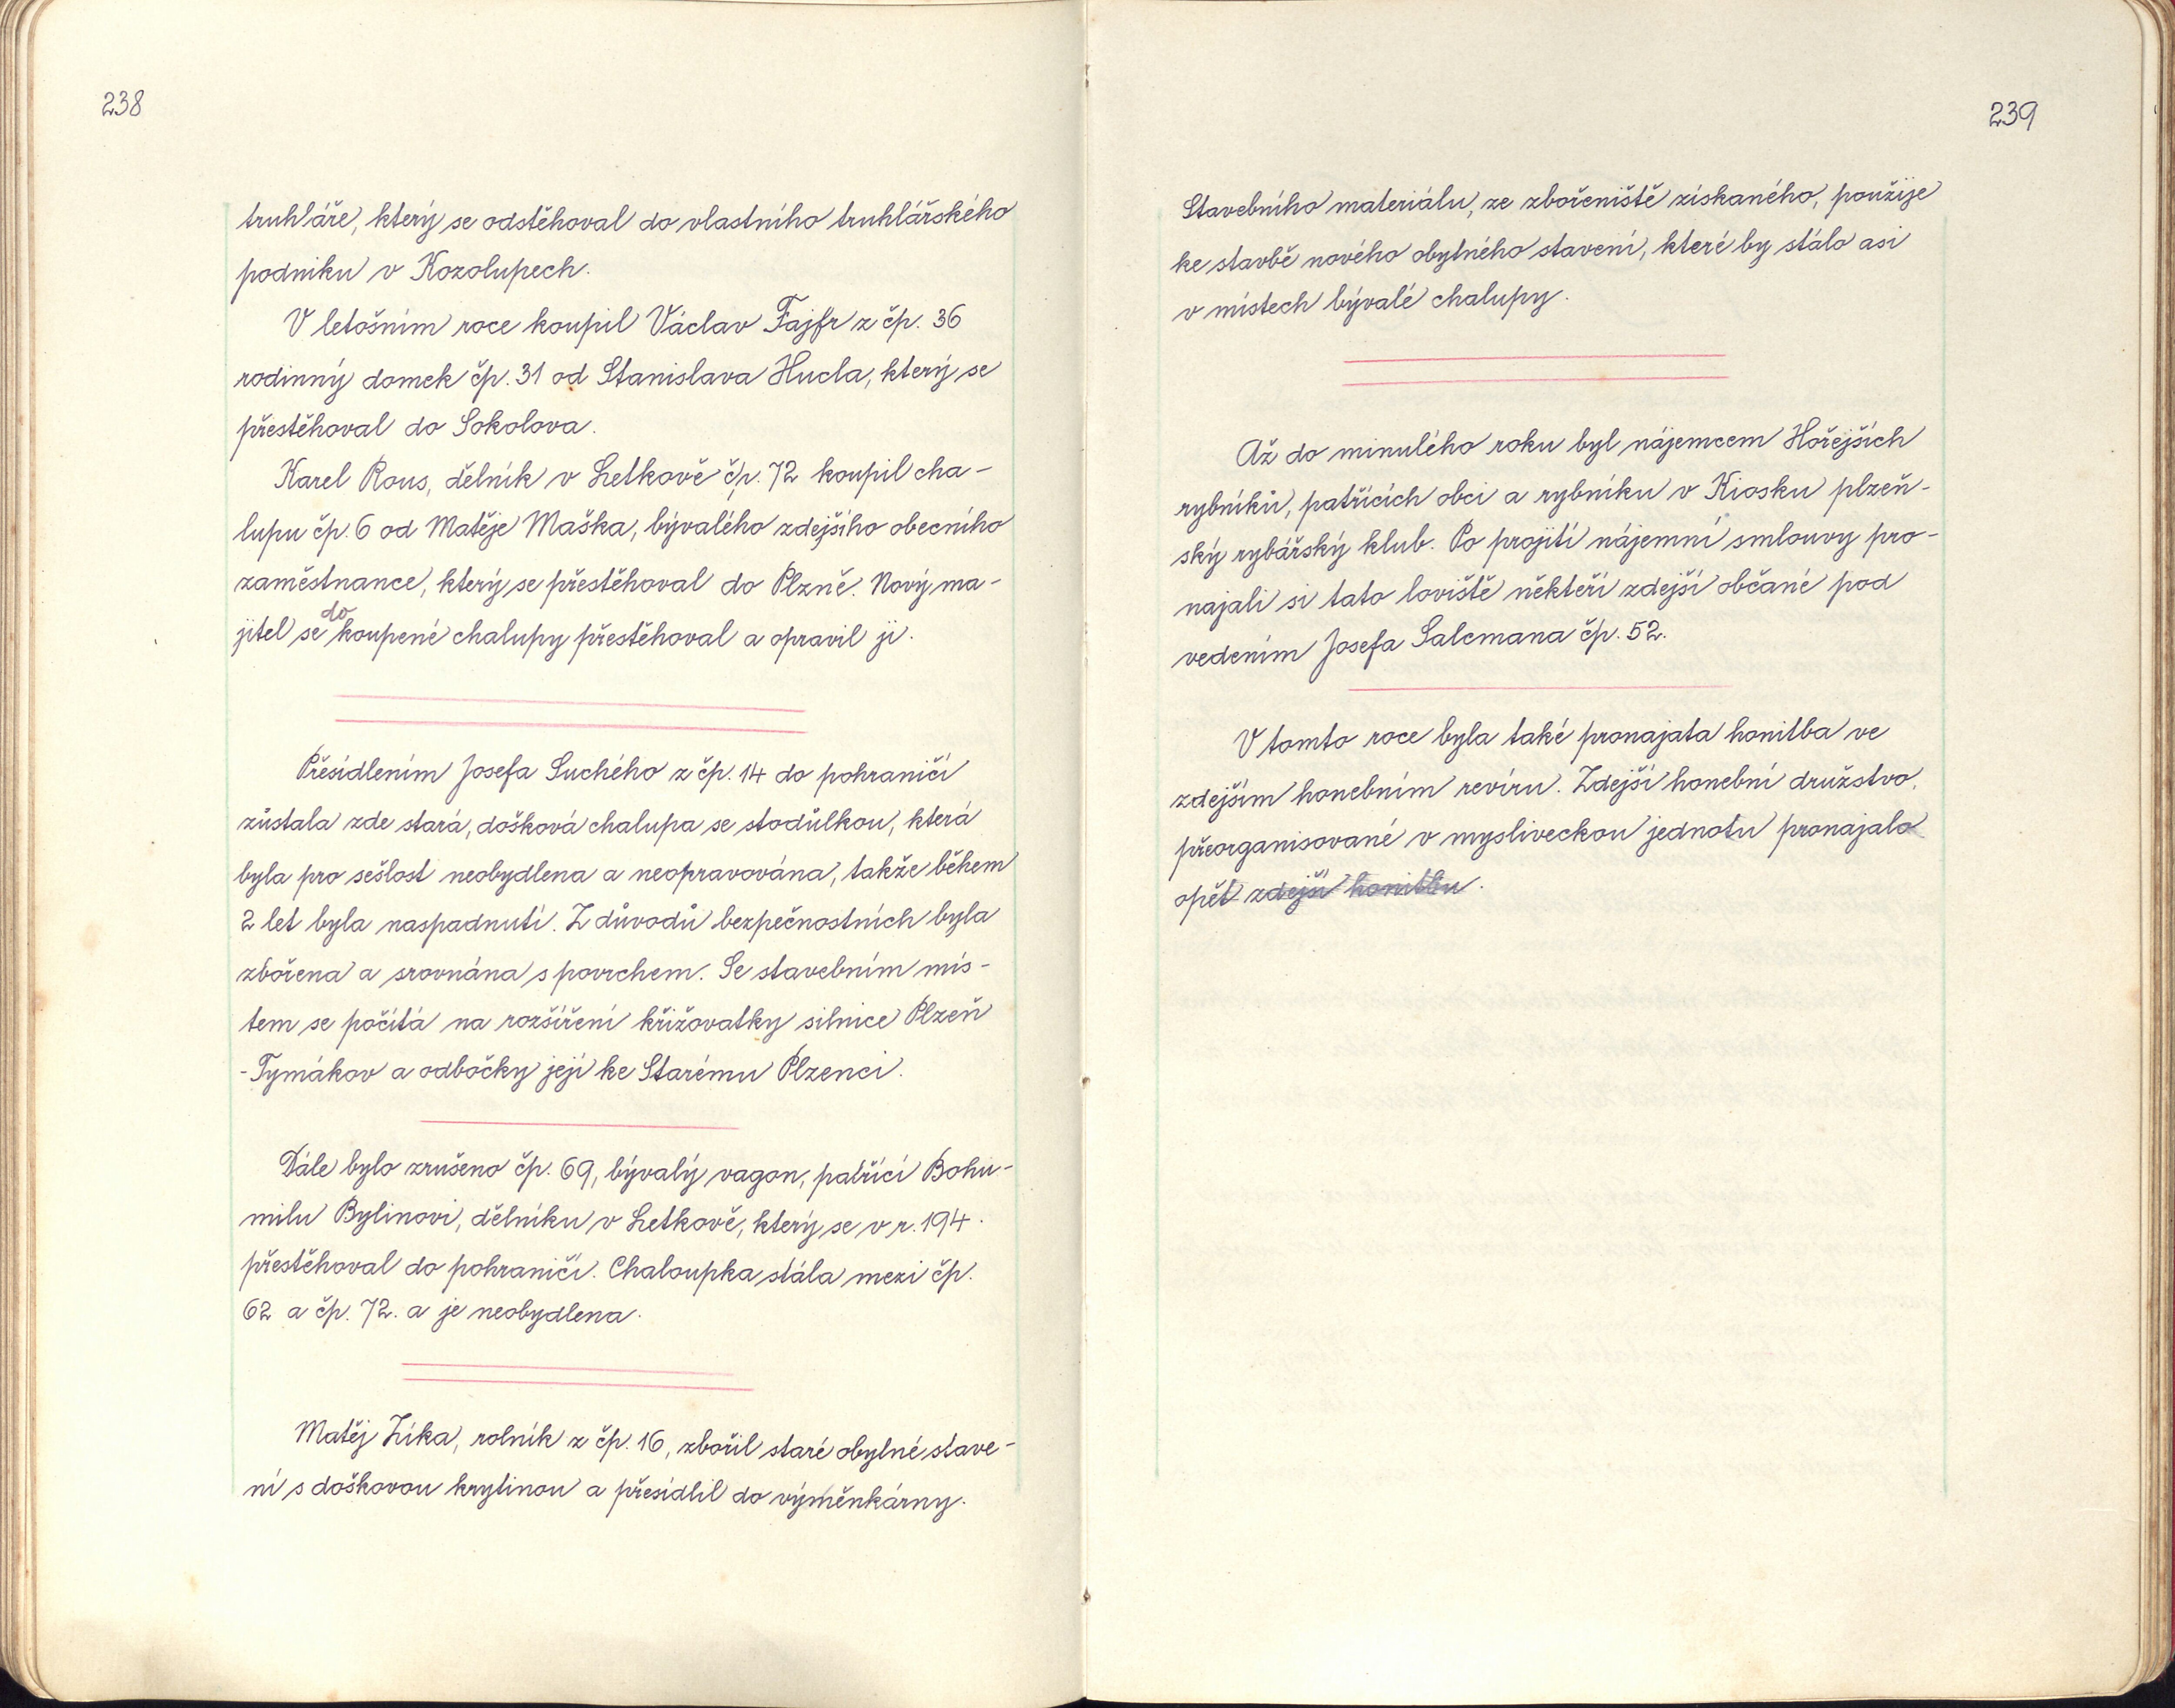 238
truhláře, který se odstěhoval do vlastního truhlářského
podniku v Kozolupech.
V letošním roce koupil Václav Fajfr z čp. 36
rodinný domek čp. 31 od Stanislava Hucla, který se
přestěhoval do Sokolova.
Karel Rous, dělník v Letkově čp. 72 koupil cha-
lupu čp. 6 od Matěje Maška, bývalého zdejšího obecního
zaměstnance, který se přestěhoval do Plzně. Nový ma-
jitel se do koupené chalupy přestěhoval a opravil ji.
Přesídlením Josefa Suchého z čp. 14 do pohraničí
zůstala zde stará, došková chalupa se stodůlkou, která
byla pro sešlost neobydlena a neopravována, takže během
2 let byla naspadnutí. Z důvodů bezpečnostních byla
zbořena a srovnána s povrchem. Se stavebním mís-
tem se počítá na rozšíření křižovatky silnice Plzeň
-Tymákov a odbočky její ke Starému Plzenci.
Dále bylo zrušeno čp. 69, bývalý vagon, patřící Bohu-
milu Bylinovi, dělníku v Letkově, který se v r. 194.
přestěhoval do pohraničí. Chaloupka stála mezi čp.
62 a čp. 72. a je neobydlena.
Matěj Zíka, rolník z čp. 16, zbořil staré obytné stave-
ní s doškovou krytinou a přesídlil do výměnkárny.
239
Stavebního materiálu, ze zbořeniště získaného, použije
ke stavbě nového obytného stavení, které by stálo asi
v místech bývalé chalupy.
Až do minulého roku byl nájemcem Hořejších
rybníků, patřících obci a rybníku v Kiosku plzeň-
ský rybářský klub. Po projití nájemní smlouvy pro-
najali si tato loviště někteří zdejší občané pod
vedením Josefa Salcmana čp. 52.
V tomto roce byla také pronajata honitba ve
zdejším honebním revíru. Zdejší honební družstvo,
přeorganisované v mysliveckou jednotu pronajalo
opět zdejší honitbu.